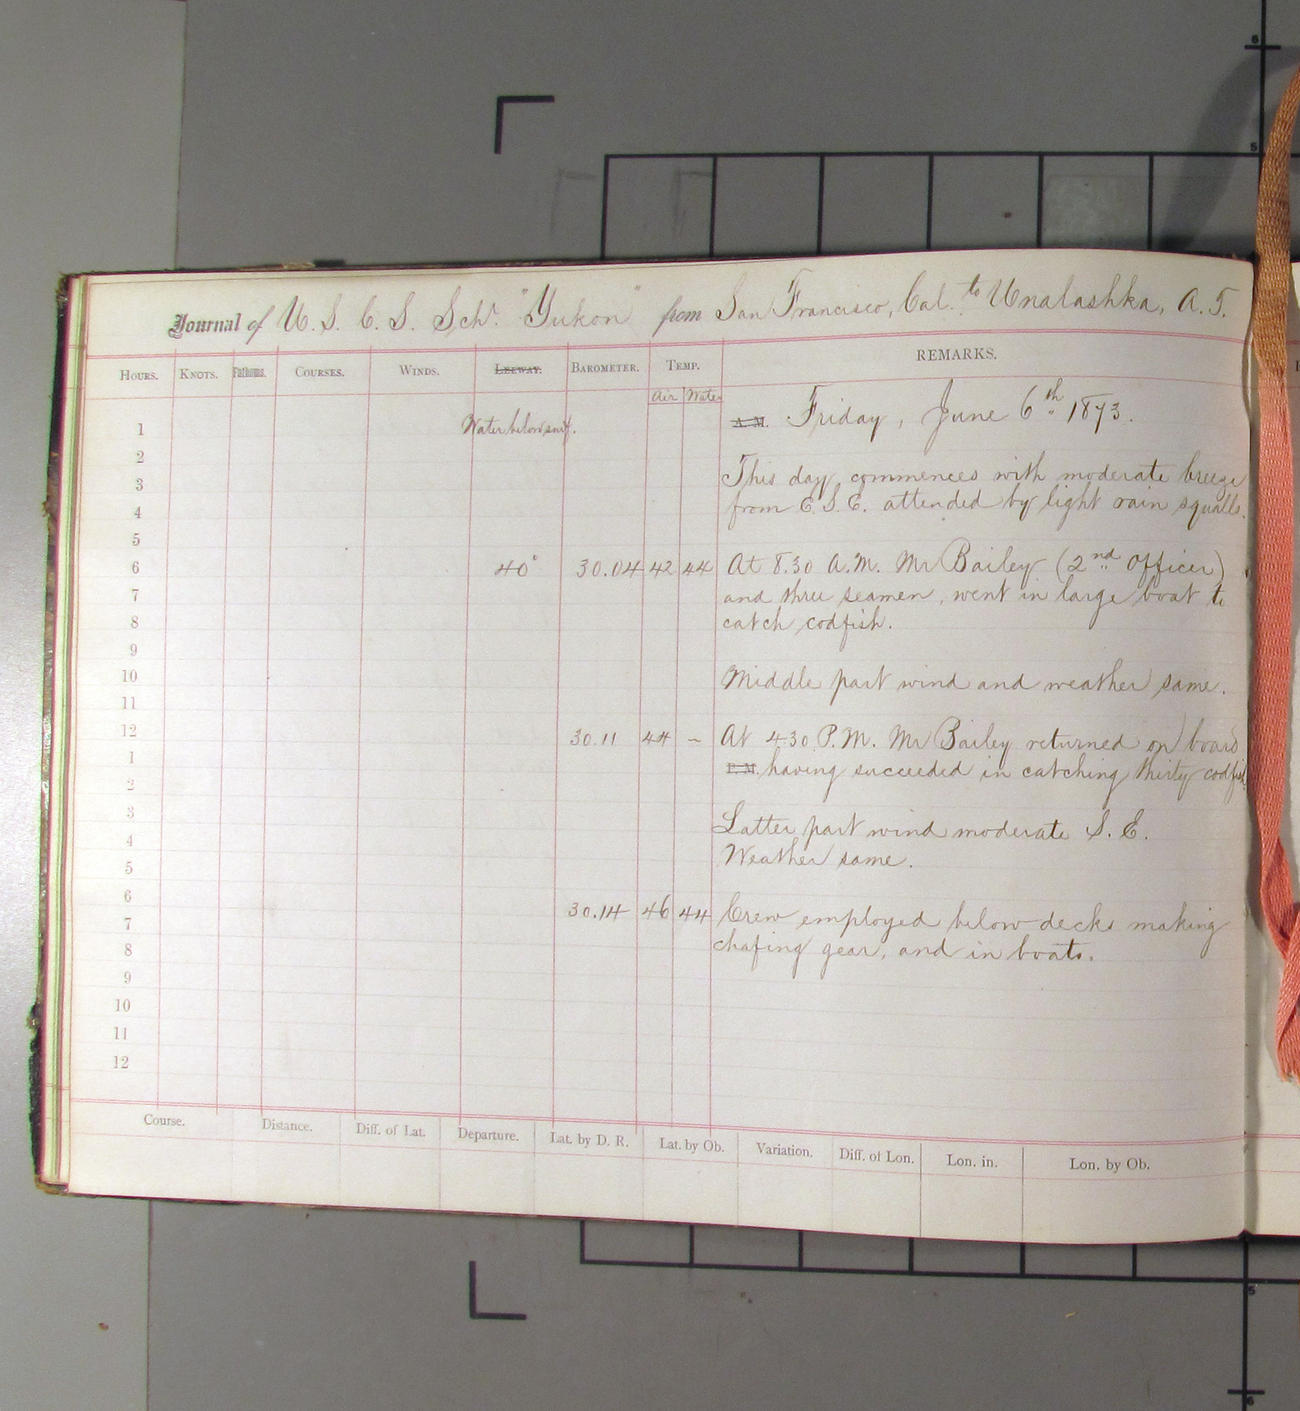 Journal of U. S. C. S. Schr. "Yukon" from San Francisco, Cal. to Unalashka, A. T.
HOURS. KNOTS. Fathoms. COURSES. WINDS. LEEWAY. BAROMETER. TEMP. REMARKS.
Air Water
1 Water below surf. A.M. Friday, June 6th 1873.
2
3 This day commences with moderate breeze
4 from E.S.E. attended by light rain squalls.
5
6 40° 30.04 42 44 At 8.30 A.M. Mr Bailey (2nd Officer)
7 and three seamen, went in large boat to
8 catch codfish.
9
10 Middle part wind and weather same.
11
12 30.11 44 – At 4.30 P.M. Mr Bailey returned on board
1 P.M. having succeeded in catching thirty codfish.
2
3 Latter part wind moderate S. E.
4 Weather same.
5
6 30.14 46 44 Crew employed below decks making
7 chafing gear, and in boats.
8
9
10
11
12
Course. Distance. Diff. of Lat. Departure. Lat. by D. R. Lat. by Ob. Variation. Diff. of Lon. Lon. in. Lon. by Ob.